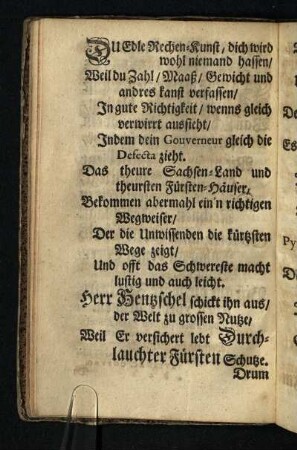 DU Edle Rechen-Kunst / dich wird
wohl niemand hassen /
Weil du Zahl / Maaß / Gewicht und
andres kanst verfassen /
In gute Richtigkeit / wenns gleich
verwirrt aussicht /
Indem dein Gouverneur gleich die
Defecta zieht.
Das theure Sachsen-Land und
theursten Fürsten-Häuser,
Bekommen abermahl ein'n richtigen
Wegweiser /
Der die Unwissenden die kürtzsten
Wege zeigt /
Und offt das Schwereste macht
lustig und auch leicht.
Herr Hentzschel schickt ihn aus /
der Welt zu grossen Nutze /
Weil Er versichert lebt Durch-
lauchter Fürsten Schutze.
Drum